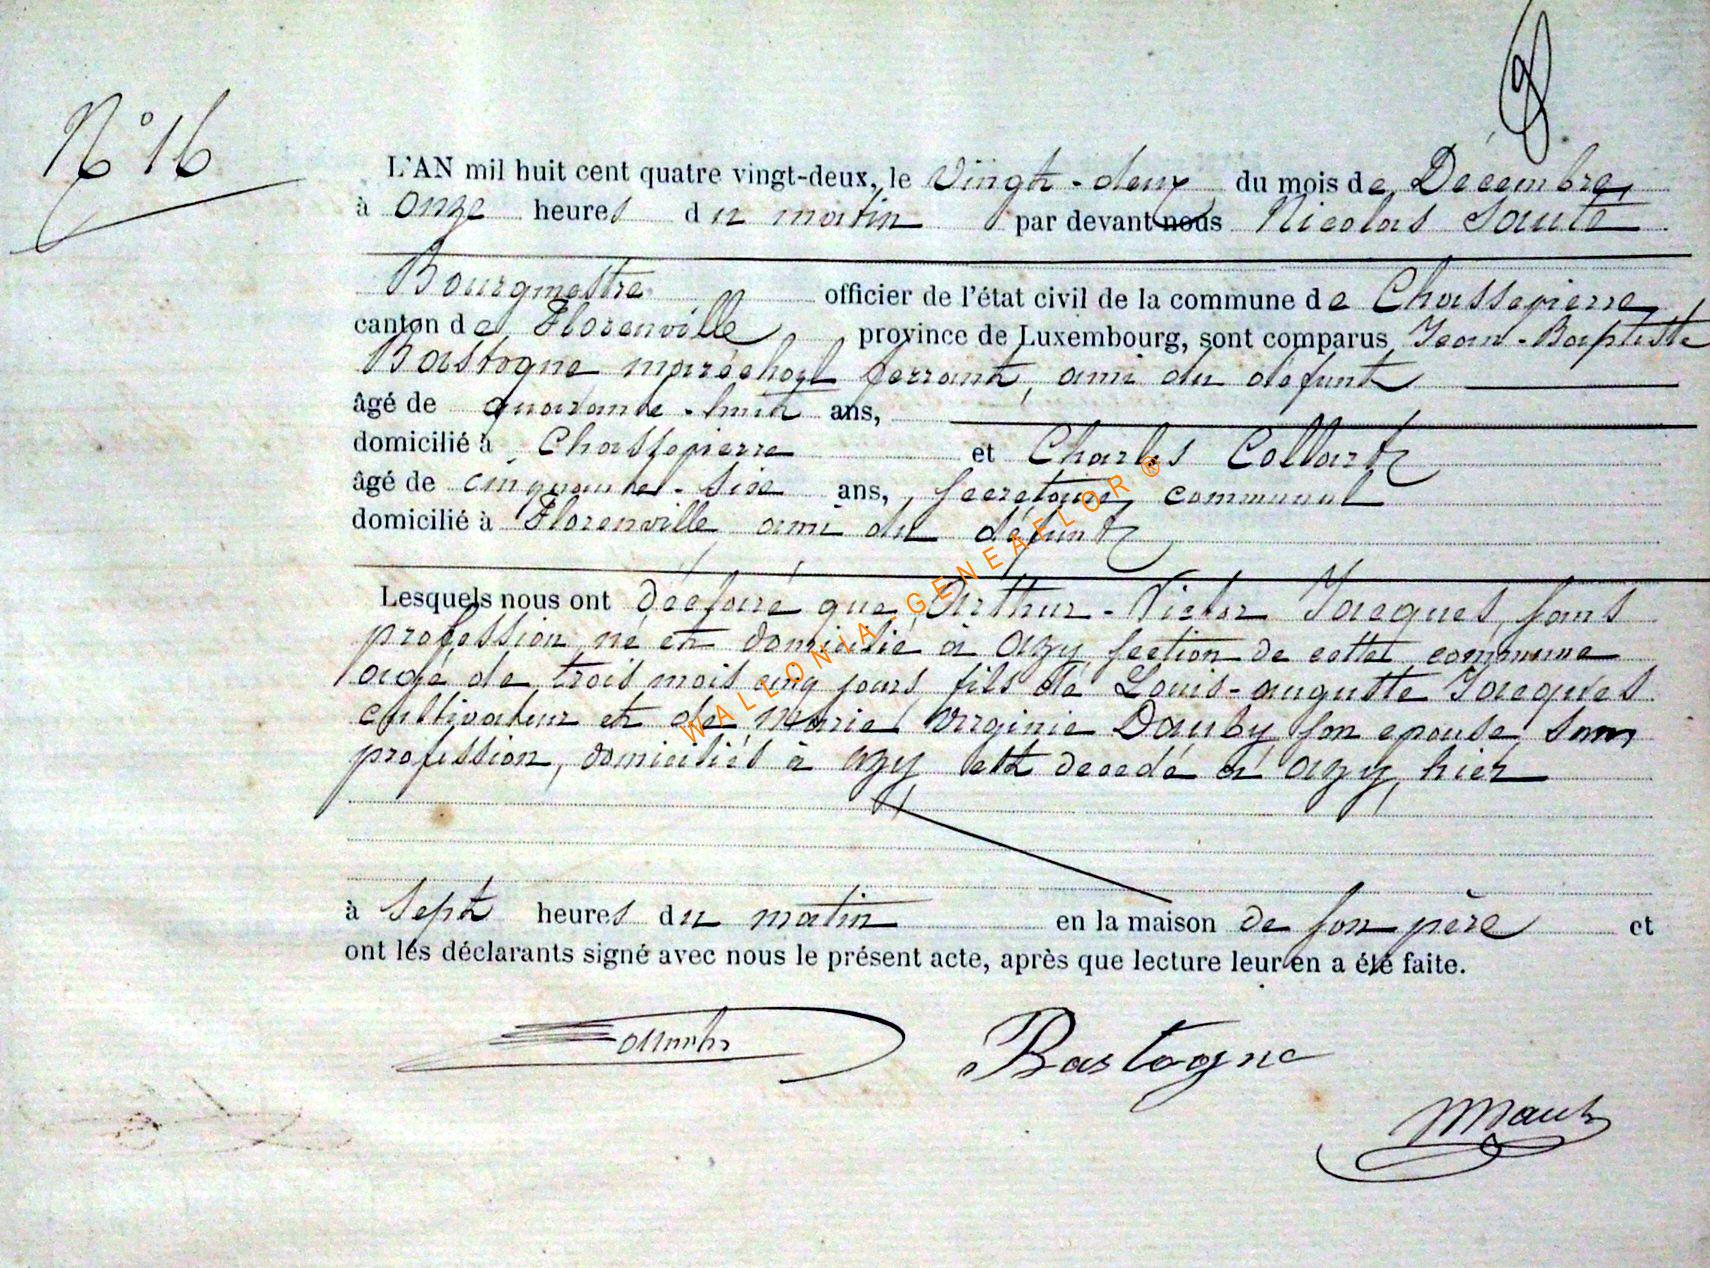 N° 16
L'AN mil huit cent quatre vingt-deux, le vingt-deux du mois de Décembre,
à onze heures du matin par devant nous Nicolas Sauté
Bourgmestre officier de l'état civil de la commune de Chassepierre
canton de Florenville province de Luxembourg, sont comparus Jean-Baptiste
Bastogne maréchal ferrant, ami du defunt
âgé de quarante-huit ans,
domicilié à Chassepierre et Charles Collart
âgé de cinquante-six ans, secretaire communal
domicilié à Florenville ami du défunt
Lesquels nous ont déclaré que Arthur-Victor Jacques, sans
profession, né et domicilié à Azy, section de cette commune
agé de trois mois cinq jours fils de Louis-auguste Jacques
cultivateur et de Marie Virginie Dauby son epouse, sans
profession, domiciliés à azy est decedé à azy, hier
à sept heures du matin en la maison de son père et
ont les déclarants signé avec nous le présent acte, après que lecture leur en a été faite.
Bastogne
WALLONIA-GENEAFLOR®